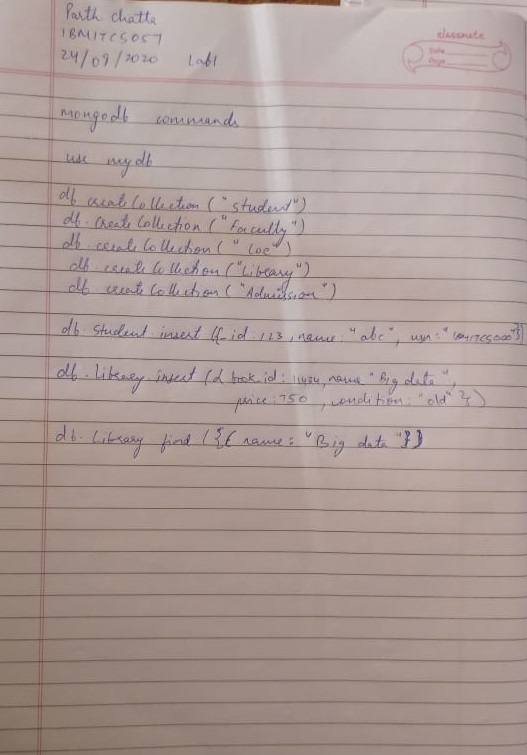 Parth chatta
1BM17CS057
24/09/2020 Lab1
classmate
Date
Page
mongodb commands
use mydb
db createCollection ("Student")
db. Create Collection ("Faculty")
db. create Collection ("Loc")
db. create Collection ("Library")
db. create Collection ("Admission")
db. Student insert ({_id: 123, name: "abc", usn: "1BM17CS000"})
db. Library insert ({ book_id: 11434, name "Big data",
price: 750, condition: "old" })
db. Library find ({{ name: "Big data"})